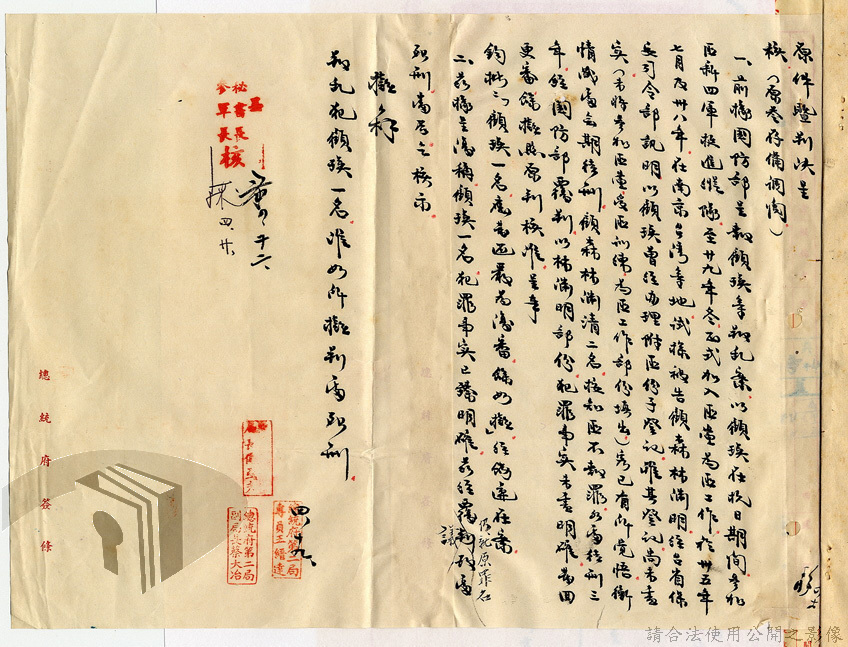 原件暨判決呈
核(原卷存備調閱)
一、前據國防部呈報顧瑛等叛亂案以顧瑛在抗日期間參加
匪新四軍挺進縱隊至廿九年冬正式加入匪黨為匪工作於卅五年
七月及卅八年在南京台灣等地試探被告顧森林淵明經台省保
安司令部訊明以顧瑛曾經辦理附匪份子登記雖其登記尚未盡
實(未將參加匪黨受匪訓練為匪工作部份填出)旣已有所覺悟衡
情減處無期徒刑顧森林淵清二名核知匪不報罪各處徒刑三
年經國防部覆判以林淵明部份犯罪事實尚未明確發回
更審餘擬照原判核准呈奉
鈞批「顧瑛一名應發還嚴為復審餘如擬」經飭遵在案
二、茲據呈復稱顧瑛一名犯罪事實已臻明確茲經覆判改處
仍犯原罪名
議
死刑當否乞核示
擬辦
叛亂犯顧瑛一名准如所擬判處死刑
秘書長
參軍長
核
四、廿
四、九
總統府第二局
專員王縉達
總統府第二局
副局長蔡大冶
總統府簽條
請合法使用公開之影像